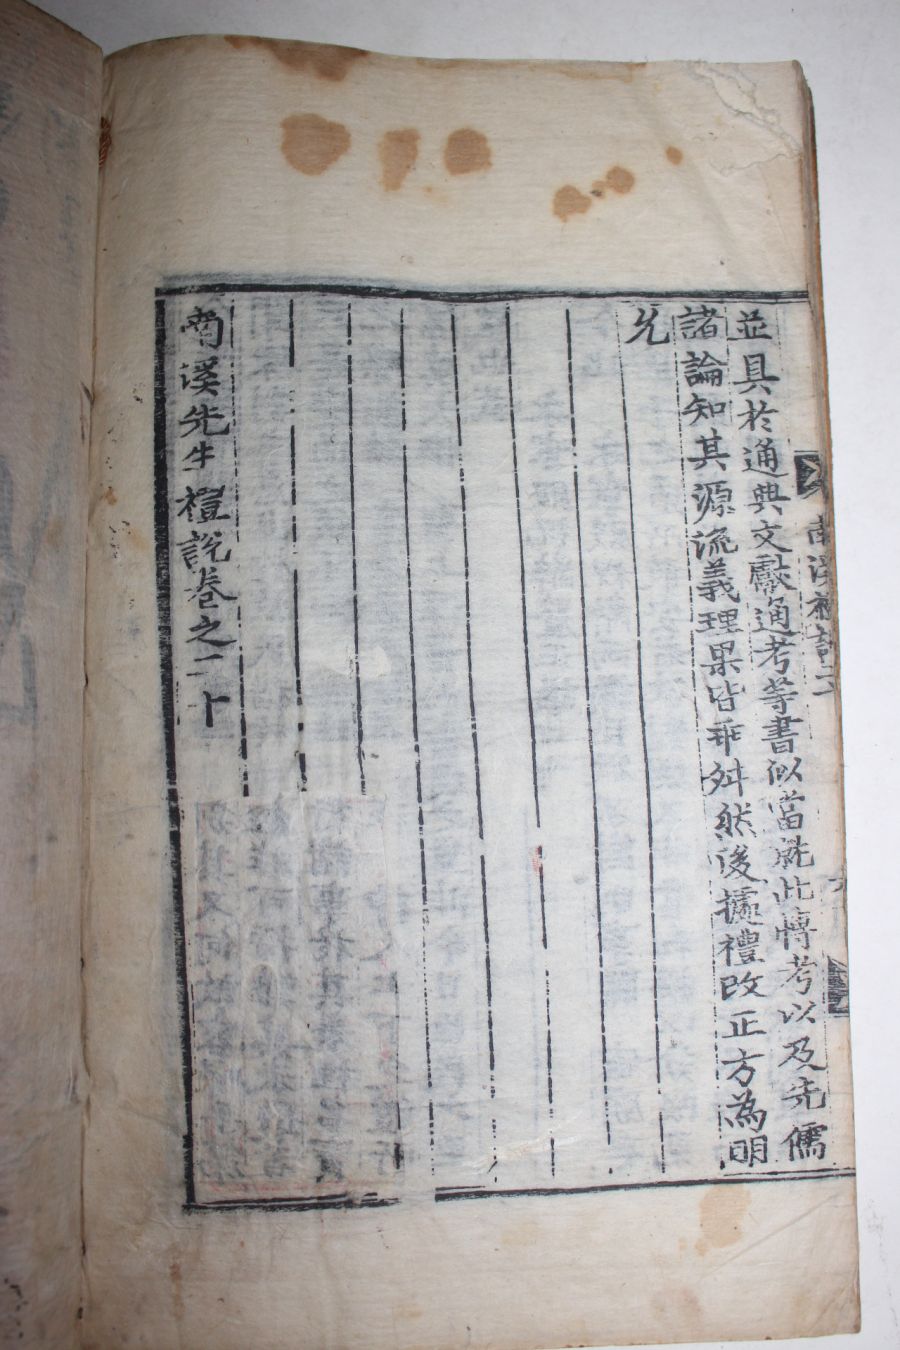 並具於通典文獻通考等書似當就此轉考以及先儒
諸論知其源流義理果皆乖舛然後據禮改正方為明
允
南溪先生禮說卷之二十
南溪禮說二